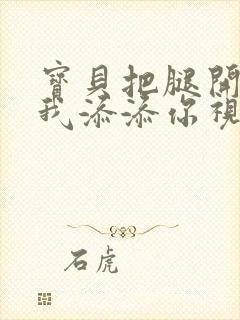 寶貝把腿開
我添添你視
石虎